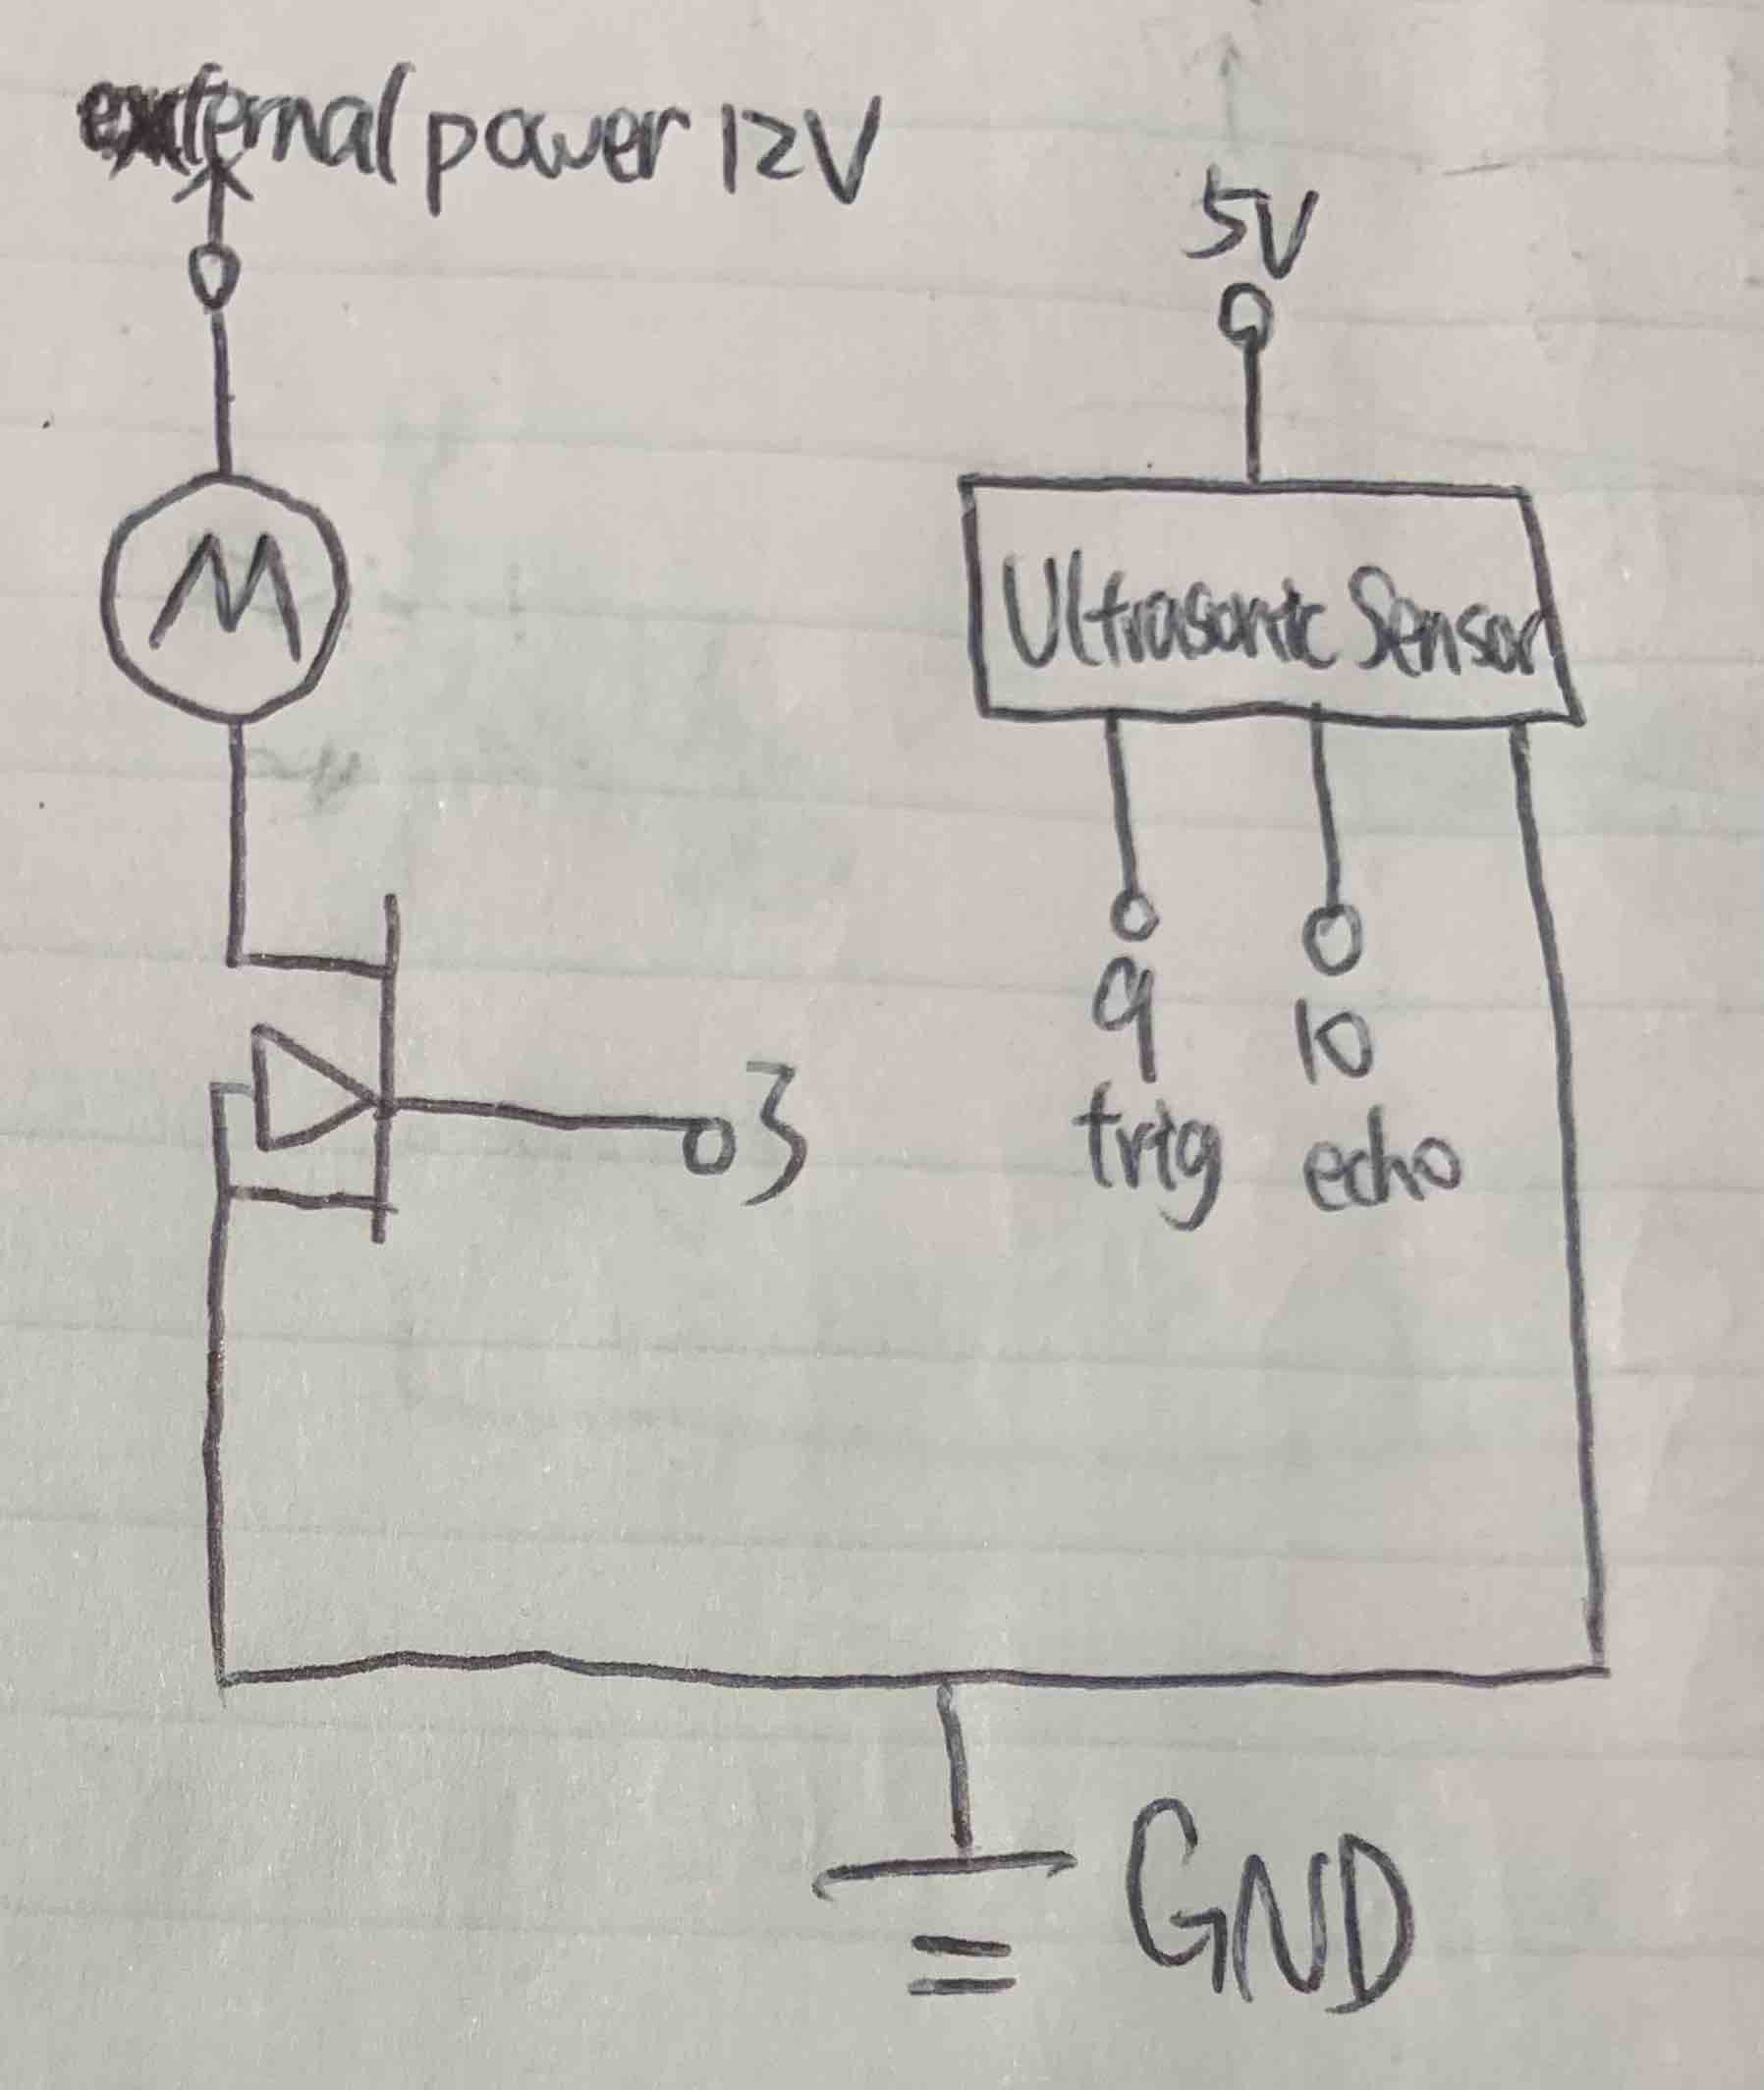 external power 12V
5V
M
Ultrasonic Sensor
3
9
10
trig
echo
GND